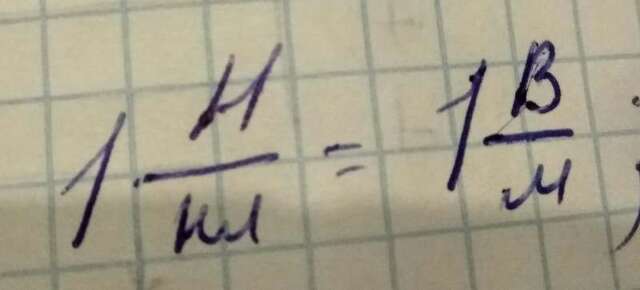 1 Н/кл = 1 В/м;